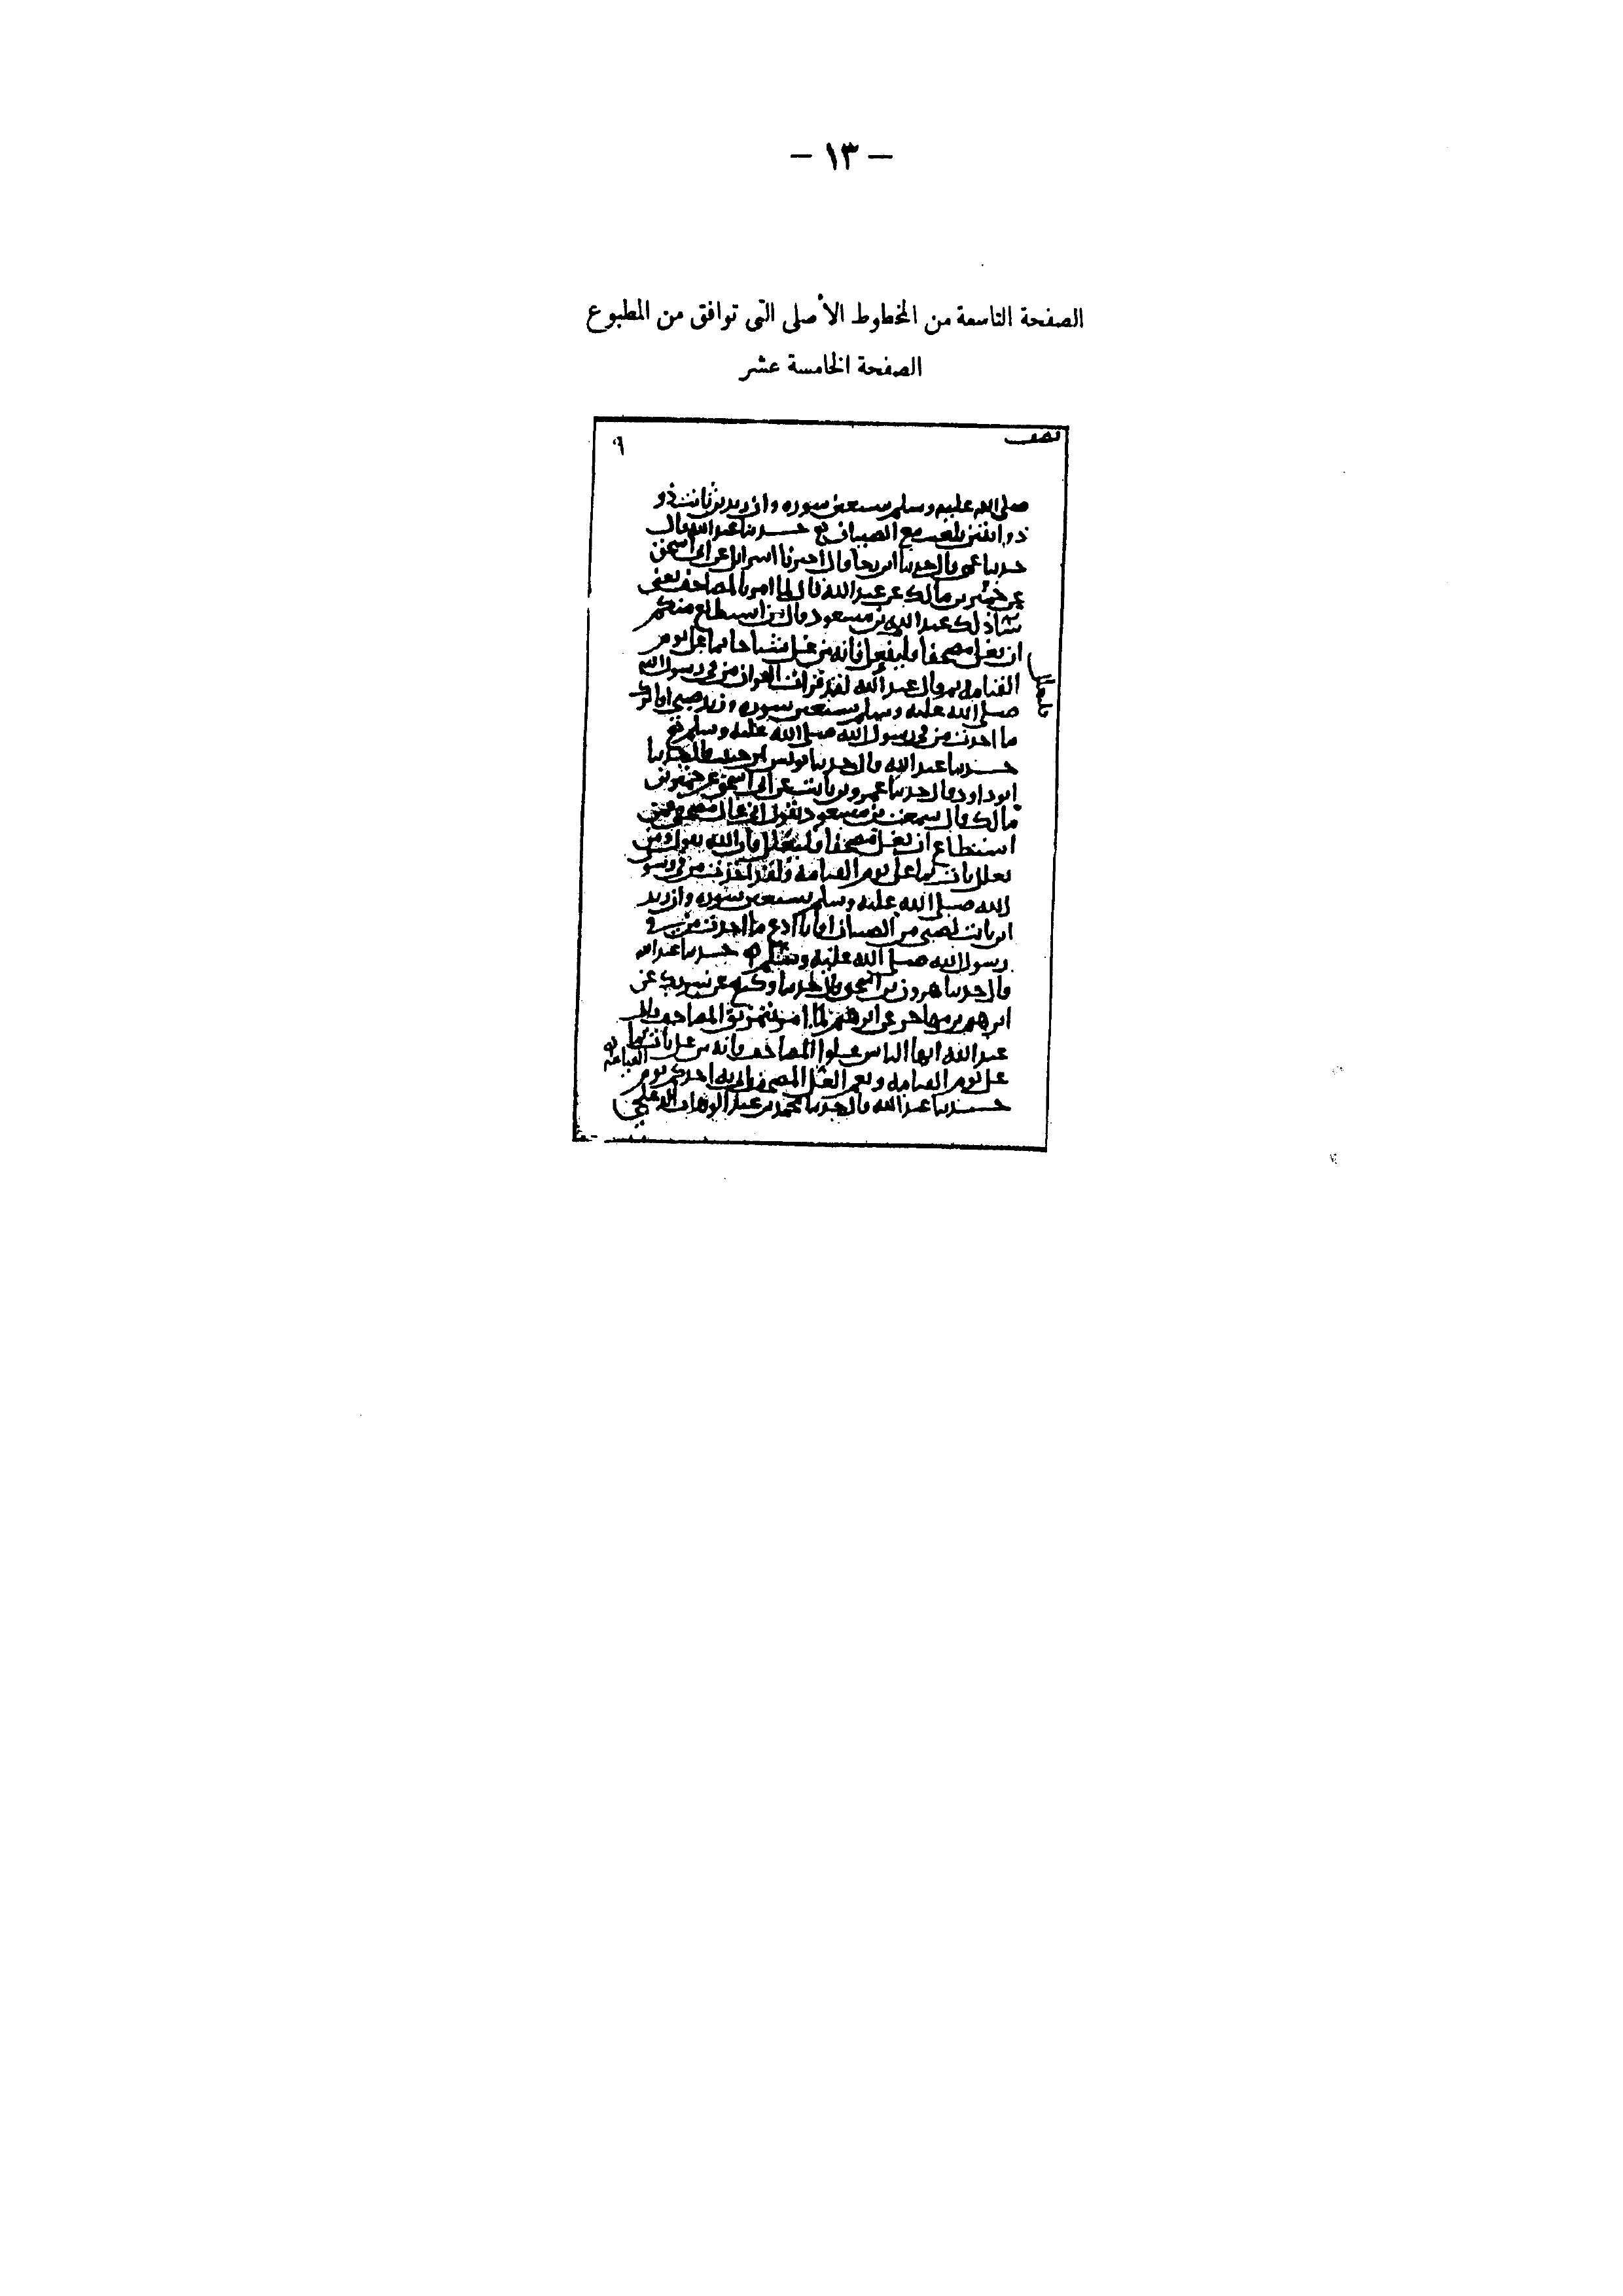 — ١٣ —
الصفحة التاسعة من المخطوط الأصلى التى توافق من المطبوع
الصفحة الخامسة عشر
٩
صلى الله عليه وسلم سبعين سوره وان زيد بن ثابت ذو
ذوابتين يلعب مع الصبيان حدثنا عبد الله قال
حدثنا عمى قال حدثنا ابن رجا قال اخبرنا اسرايل عن ابى اسحق
عن خمير بن مالك عن عبد الله قال لما امر بالمصاحف
ذلك عبد الله بن مسعود قال من استطاع منكم
ان يغل مصحفا فليفعل فانه من غل شيا جا بما غل يوم
القيامه ثم قال عبد الله لقد قرات القران من فى رسول الله
صلى الله عليه وسلم سبعين سوره وزيد صبى افاترك
ما اخذت من فى رسول الله صلى الله عليه وسلم
حدثنا عبد الله قال حدثنا يونس بن حبيب قال حدثنا
ابو داود قال حدثنا عمرو بن ثابت عن ابى اسحق عن خمير بن
مالك قال سمعت بن مسعود يقول انى غال مصحفى فمن
استطاع ان يغل مصحفا فليغلل فان الله يقول ومن
يغلل يات بما غل يوم القيامه ولقد اخذت من فى رسول
الله صلى الله عليه وسلم سبعين سوره وان زيد
ابن ثابت لصبى من الصبيان افانا ادع ما اخذت من فى
رسول الله صلى الله عليه وسلم حدثنا عبد الله
قال حدثنا هرون بن اسحق قال حدثنا وكيع عن شريك عن
ابرهيم بن مهاجر عن ابرهيم لما امر بتمزيق المصاحف قال
عبد الله ايها الناس غلوا المصاحف فانه من غل يات بما
غل يوم القيامه ونعم الغل المصحف ياتى به احدكم يوم
القيامه
حدثنا عبد الله قال حدثنا محمد بن عبد الوهاب الدعلجى